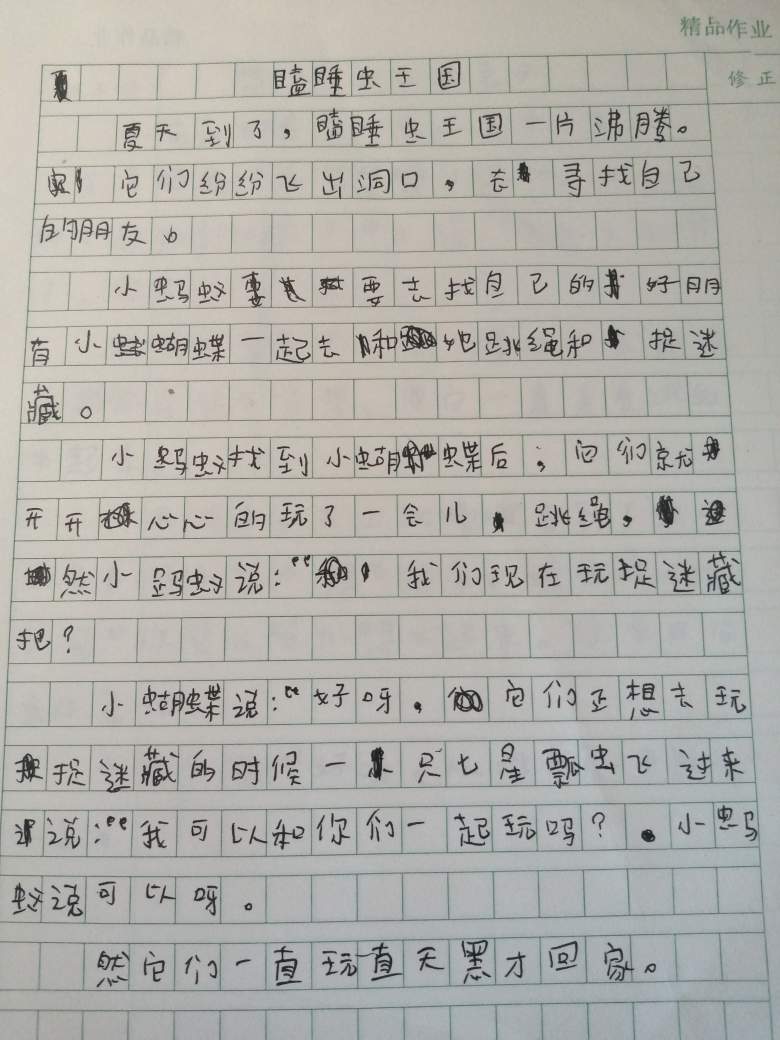 精品作业
修正
瞌睡虫王国
夏天到了，瞌睡虫王国一片沸腾。
它们纷纷飞出洞口，去寻找自己
的朋友。
小蚂蚁要去找自己的好朋
有小蝴蝶一起去和她跳绳和捉迷
藏。
小蚂蚁找到小蝴蝶后，它们京尤
开开心心的玩了一会儿跳绳。
然小蚂蚁说：“我们现在玩捉迷藏
把？
小蝴蝶说：“好呀。它们正想去玩
捉迷藏的时候一只七星瓢虫飞过来
说：“我可以和你们一起玩吗？。小蚂
蚁说可以呀。
然它们一直玩直天黑才回家。